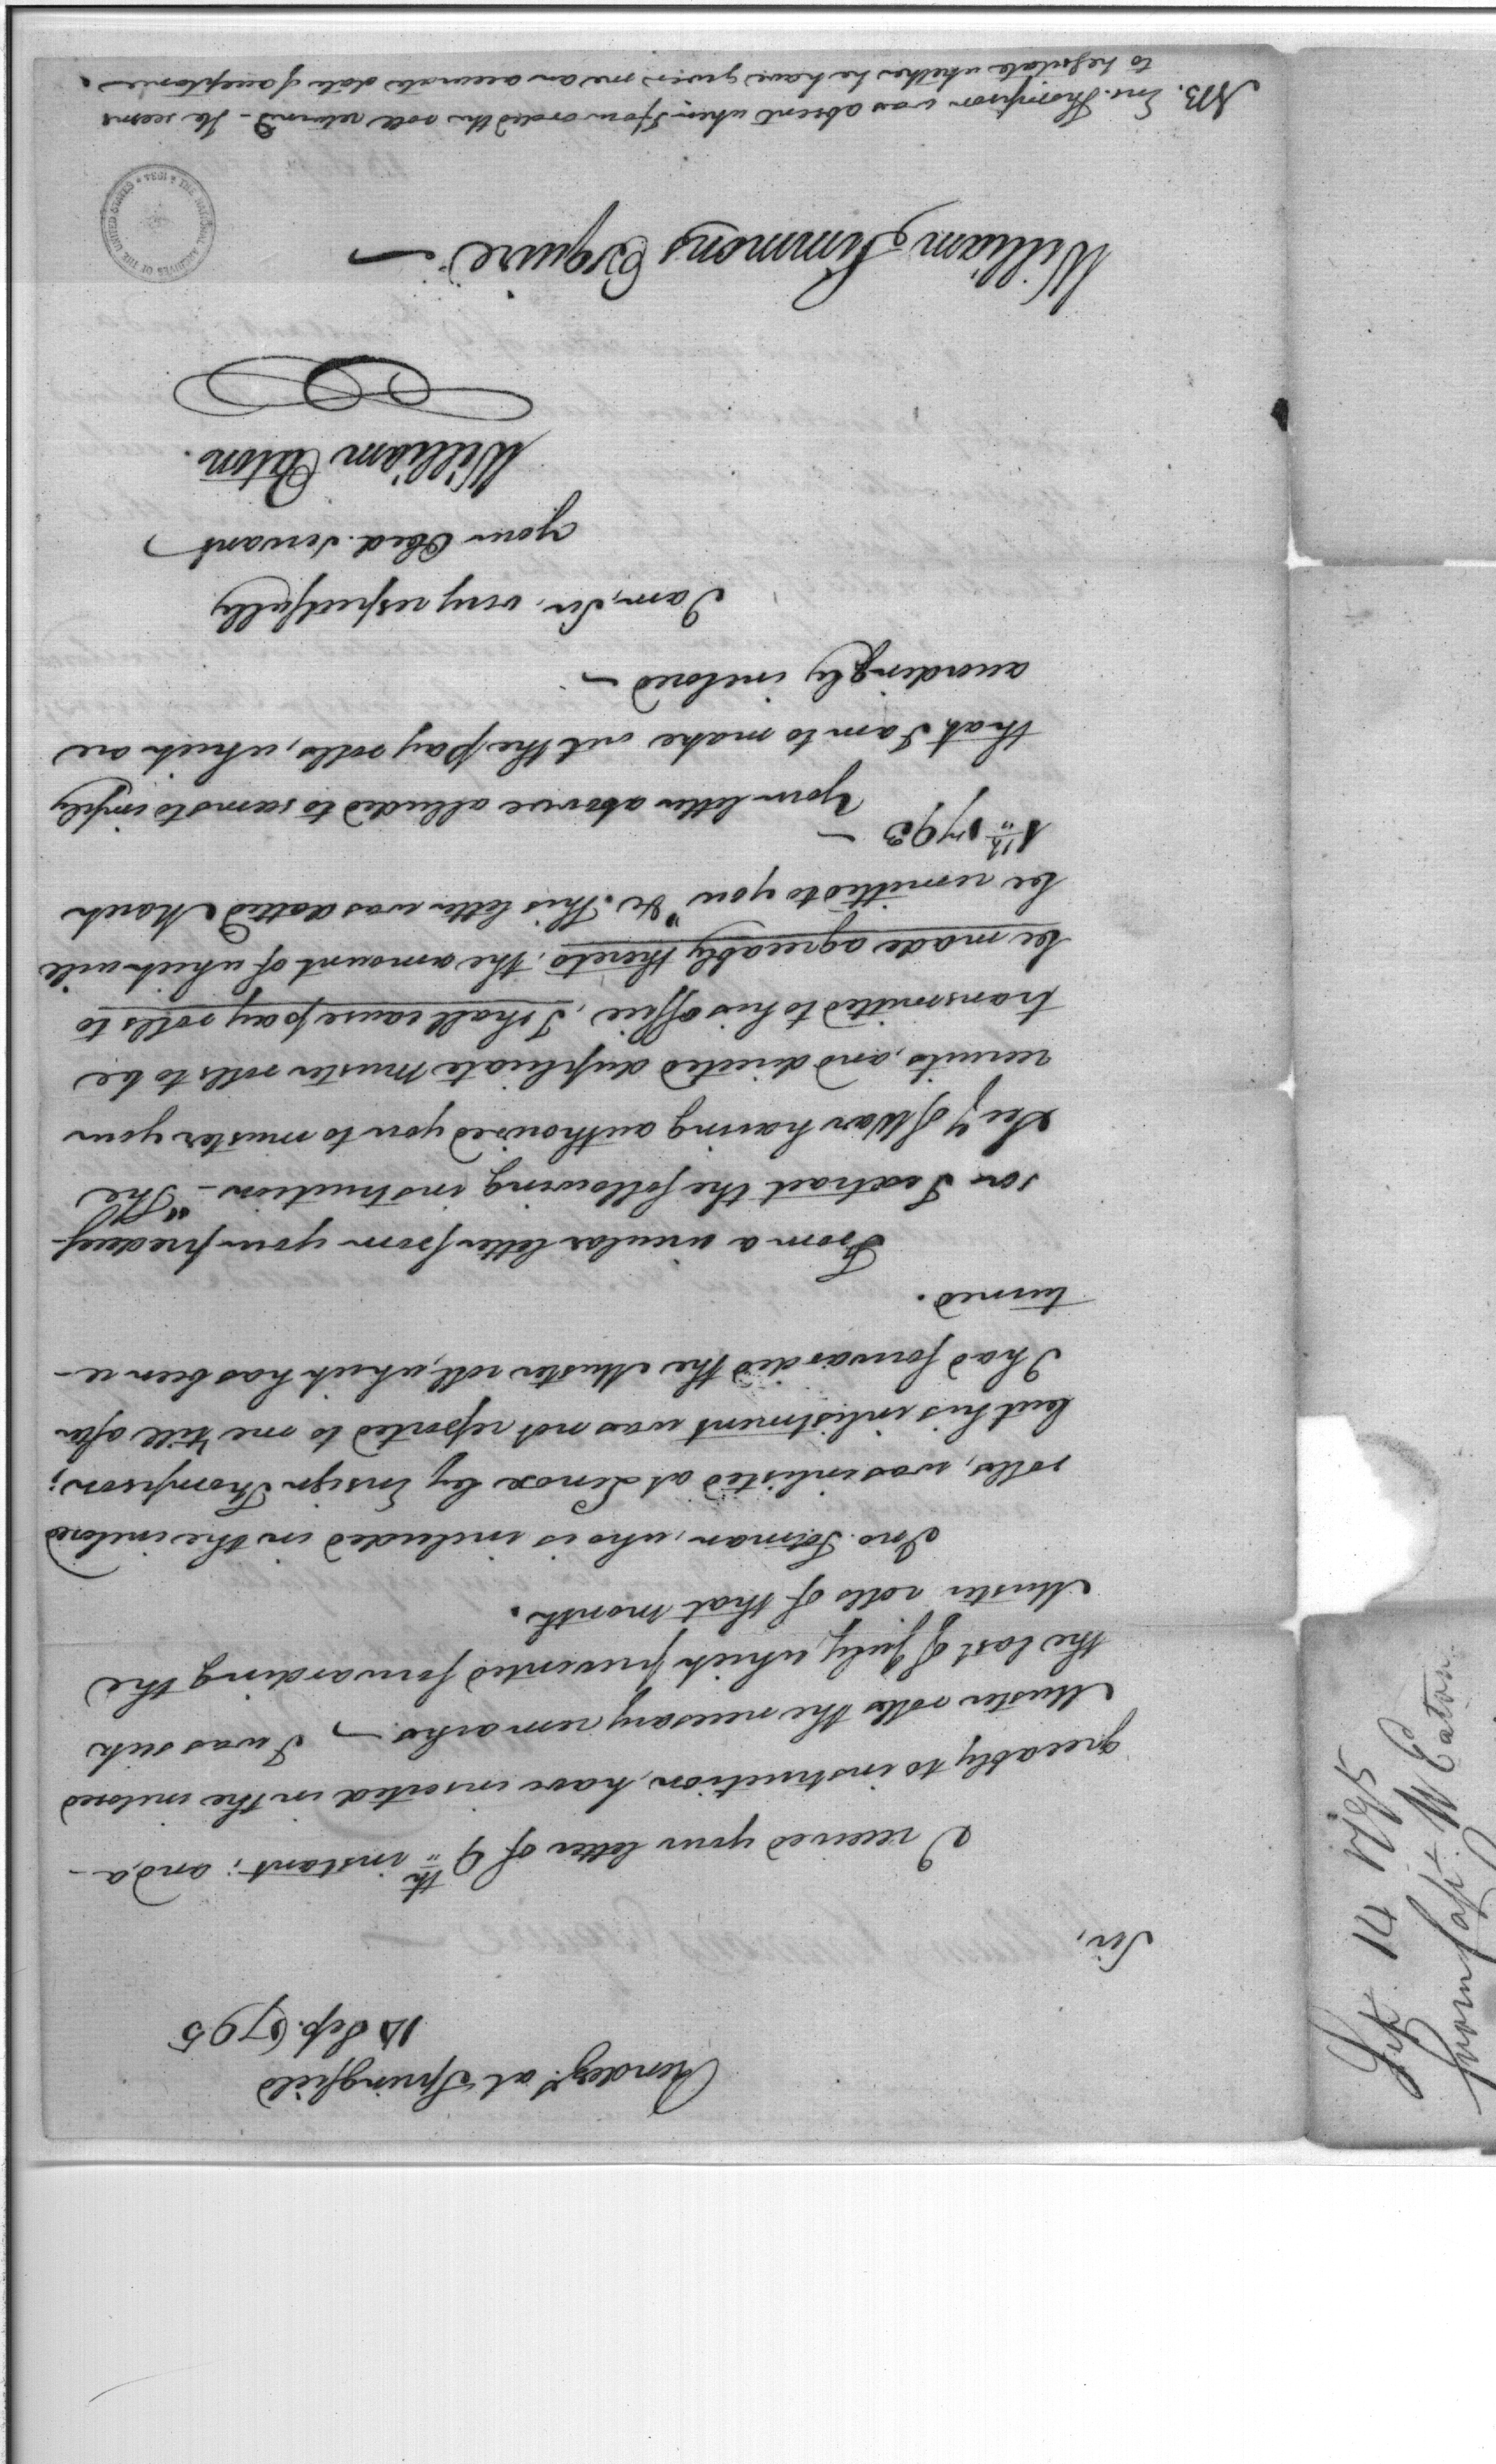 Rendez.s at Springfield
14 Sep. 1795
Sir,
I received your letter of 9th instant; and, a-
greeably to instruction, have inserted in the inclosed
Muster rolls the necessary remarks. — I was sick
the last of July, which prevented forwarding the
Muster rolls of that month.
Jno. Totman, who is included in the inclosed
rolls, was inlisted at Lenox by Ensign Thompson;
but his inlistment was not reported to me 'till after
I had forwarded the Muster roll, which has been re-
turned.
From a circular letter from your predeces-
sor I extract the following instruction — "The
Secy of War having authorised you to muster your
recruits, and directed duplicate muster rolls to be
transmitted to his office, I shall cause pay rolls to
be made agreeably thereto, the amount of which will
be remitted to you" &c. This letter was dated March
1793 —
Your letter above alluded to seems to imply
that I am to make out the pay rolls, which are
accordingly inclosed —
I am, Sir, very respectfully
your Obed. Servant
William Eaton.
William Simmons Esquire —
NB. Ens. Thompson was absent when I forwarded the roll returned — He seems
to hesitate whether he have given me an accurate date of acceptance.
THE NATIONAL ARCHIVES OF THE UNITED STATES • 1934
Sept 14 1795
from Capt. W Eaton